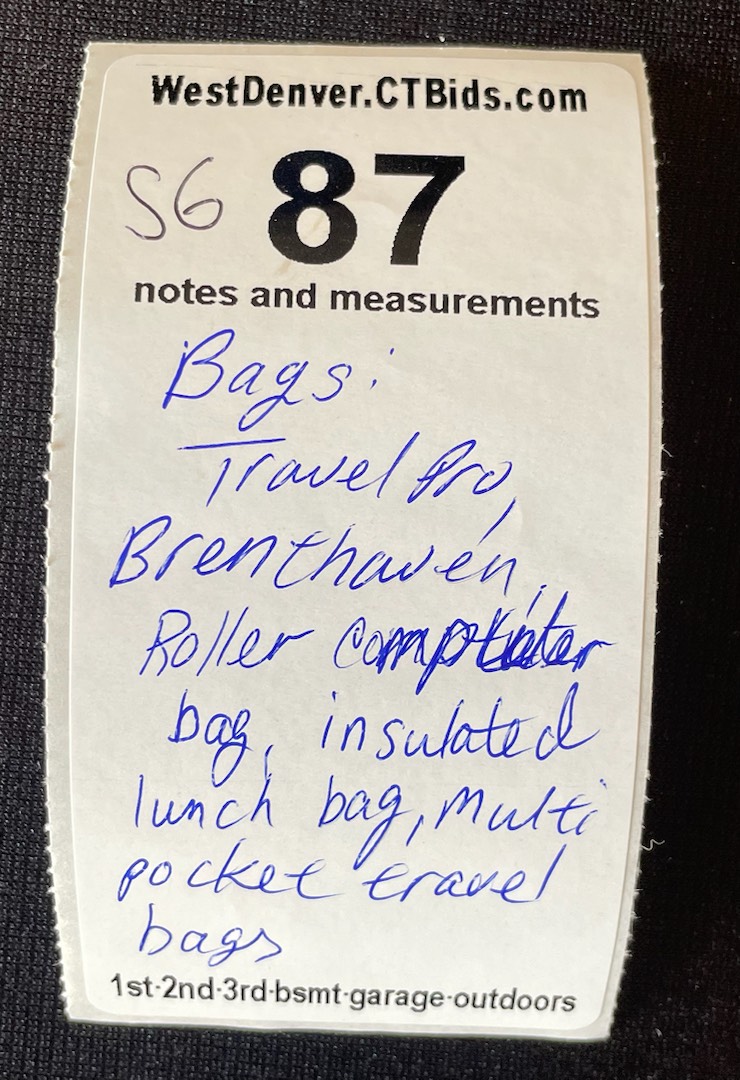 WestDenver.CTBids.com
SG 87
notes and measurements
Bags:
Travel Pro,
Brenthaven,
Roller computer
bag, insulated
lunch bag, multi
pocket travel
bags
1st-2nd-3rd-bsmt-garage-outdoors